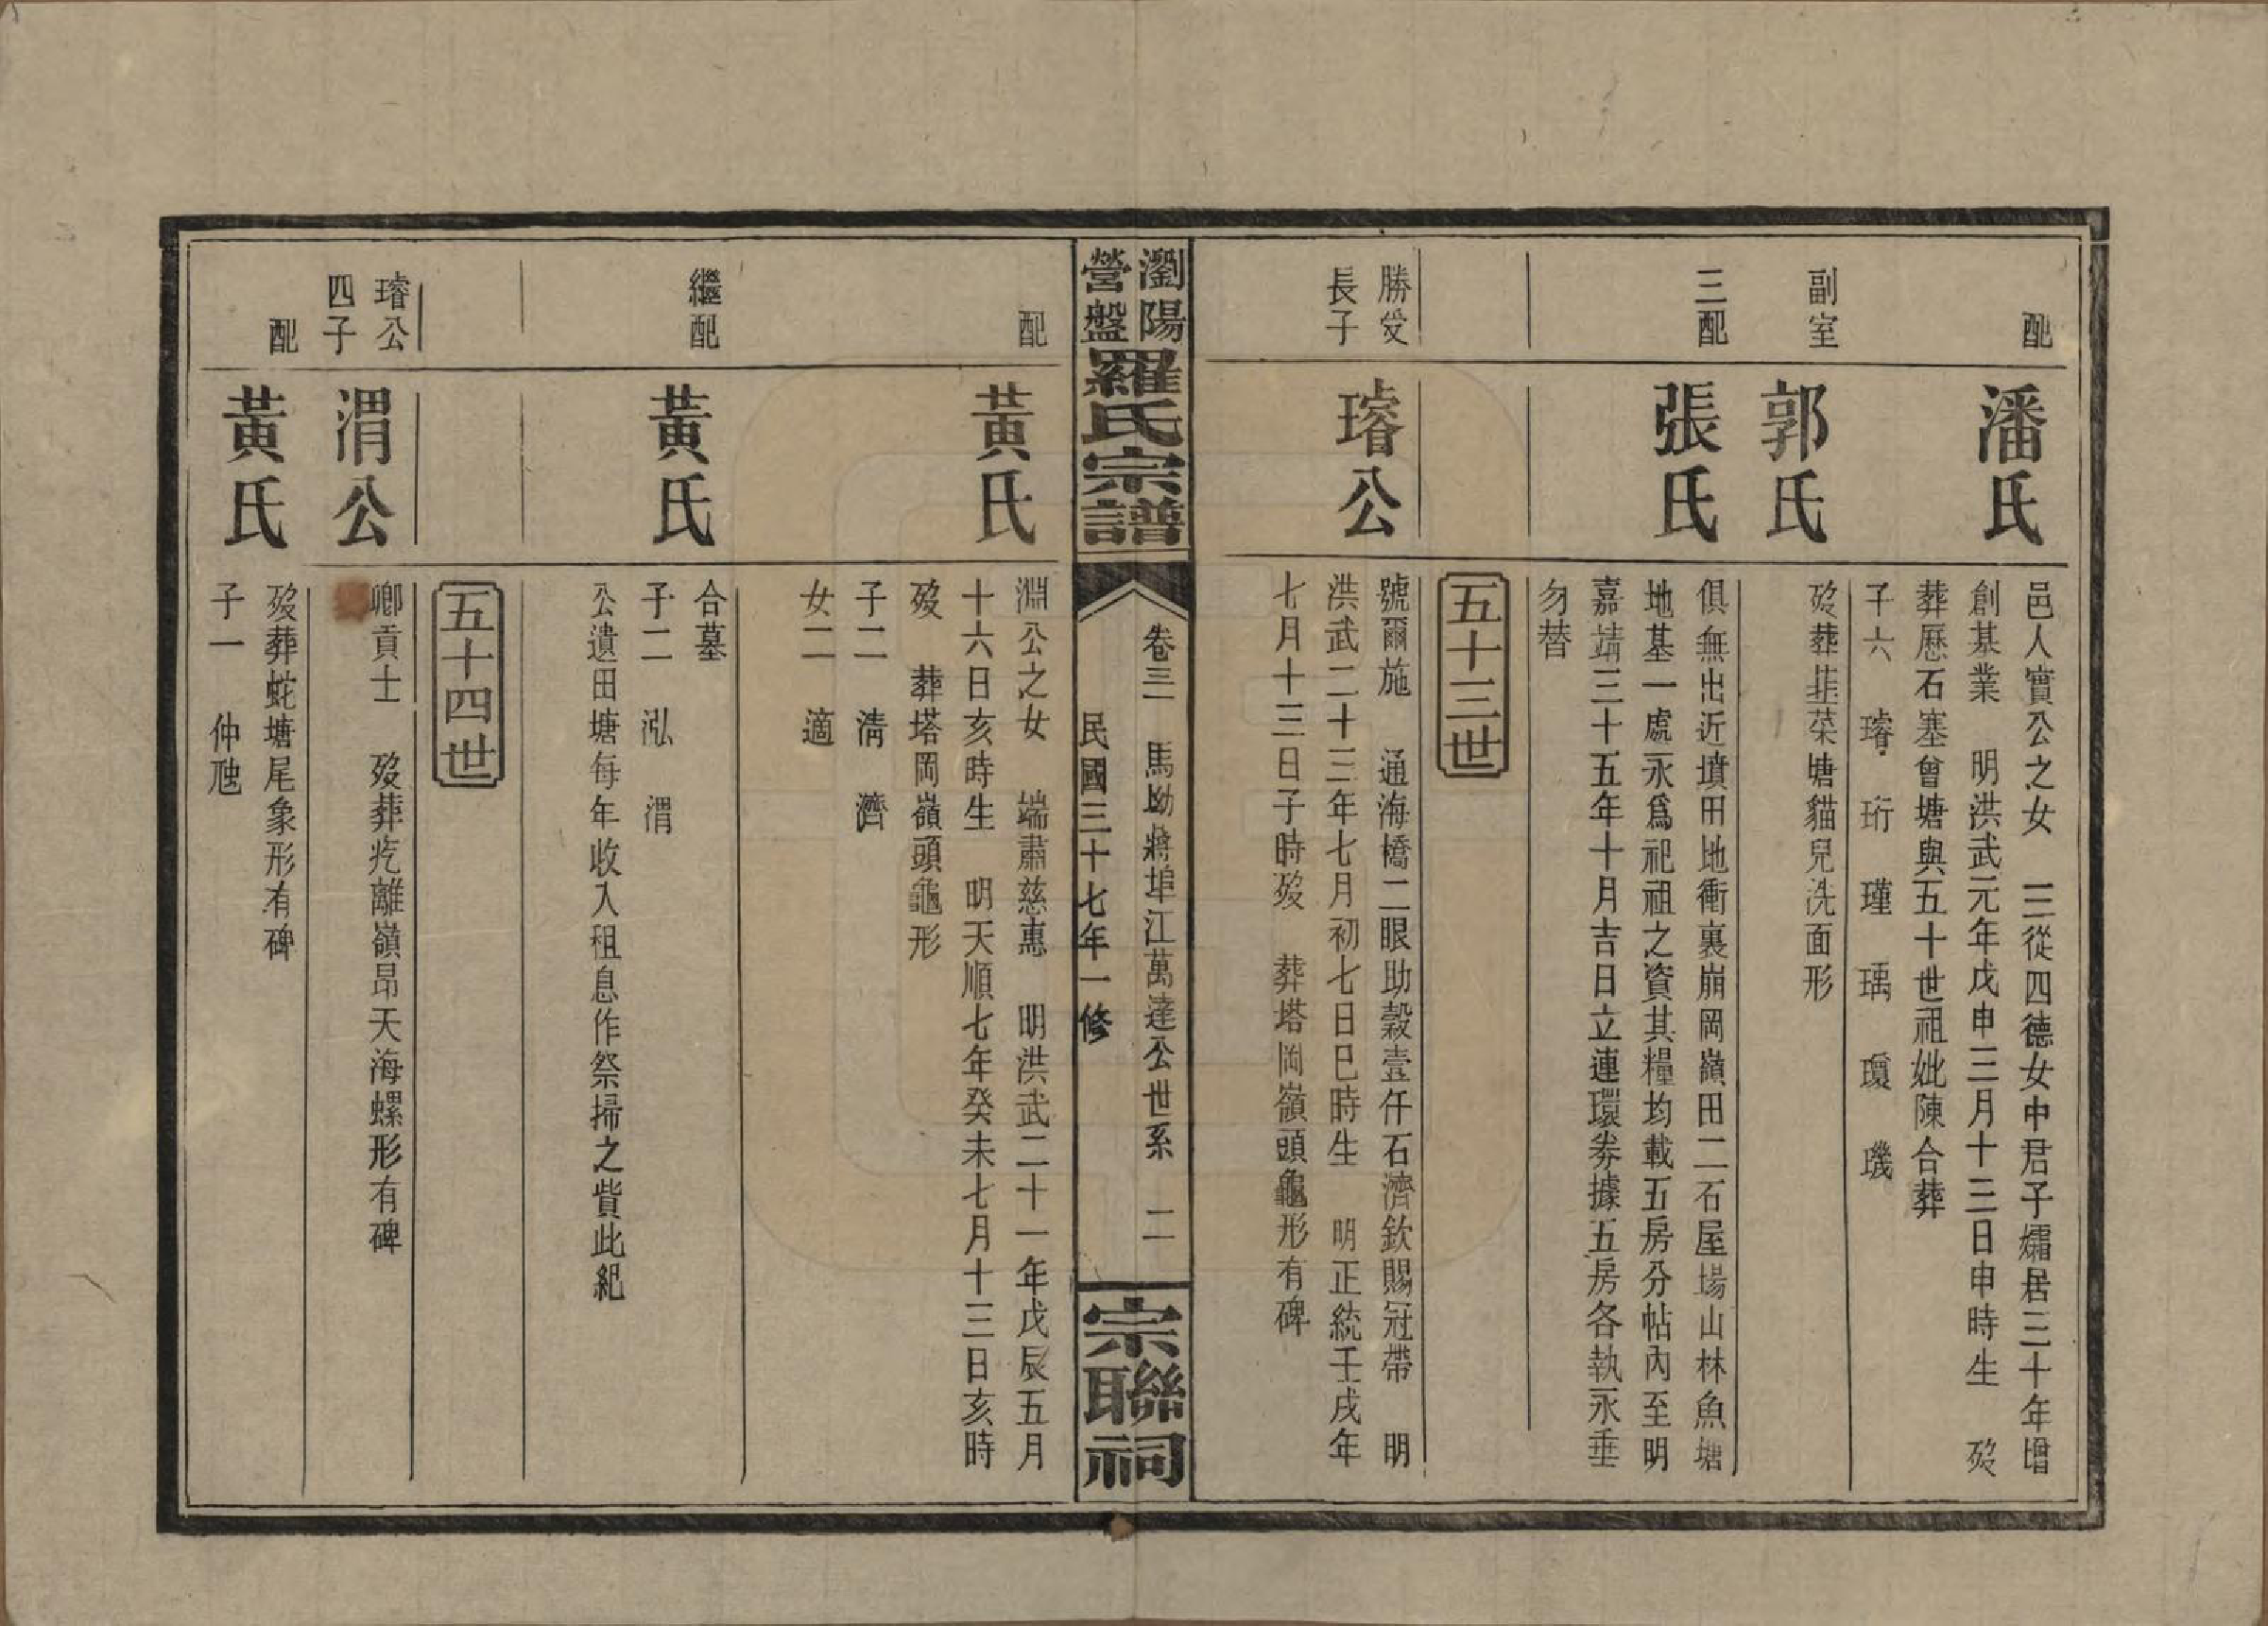 配
潘氏
邑人實公之女　三從四德女中君子孀居三十年增
創基業　明洪武元年戊申三月十三日申時生　歿
葬歷石塞曾塘與五十世祖妣陳合葬
子六　璿　珩　瑾　瑀　瓊　璣
副室
郭氏
歿葬韮菜塘貓兒洗面形
三配
張氏
俱無出近墳田地衝裏崩岡嶺田二石屋場山林魚塘
地基一處永爲祀祖之資其糧均載五房分帖內至明
嘉靖三十五年十月吉日立連環券據五房各執永垂
勿替
五十三世
勝受
長子
璿公
號爾施　通海橋二眼助穀壹仟石濟欽賜冠帶　明
洪武二十三年七月初七日巳時生　明正統壬戌年
七月十三日子時歿　葬塔岡嶺頭龜形有碑
瀏陽
營盤
羅氏宗譜
卷三　馬坳蔣埠江萬達公世系　二
民國三十七年一修
宗聯祠
配
黃氏
淵公之女　端肅慈惠　明洪武二十一年戊辰五月
十六日亥時生　明天順七年癸未七月十三日亥時
歿　葬塔岡嶺頭龜形
子二　淸　濟
女二　適
繼配
黃氏
合墓
子二　泓　渭
公遺田塘每年收入租息作祭掃之貲此紀
五十四世
璿公
四子
渭公
鄉貢士　歿葬疙離嶺昂天海螺形有碑
配
黃氏
歿葬蛇塘尾象形有碑
子一　仲